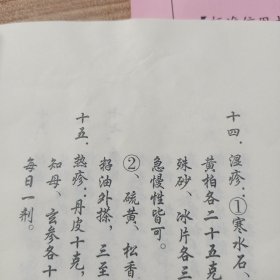 十四、湿疹：①寒水石、
黄柏各二十五克
殊砂、冰片各三
急慢性皆可。
②、硫黄、松香
籽油外搽，三至
十五、热疹：丹皮十克，
知母、玄参各十
每日一剂。